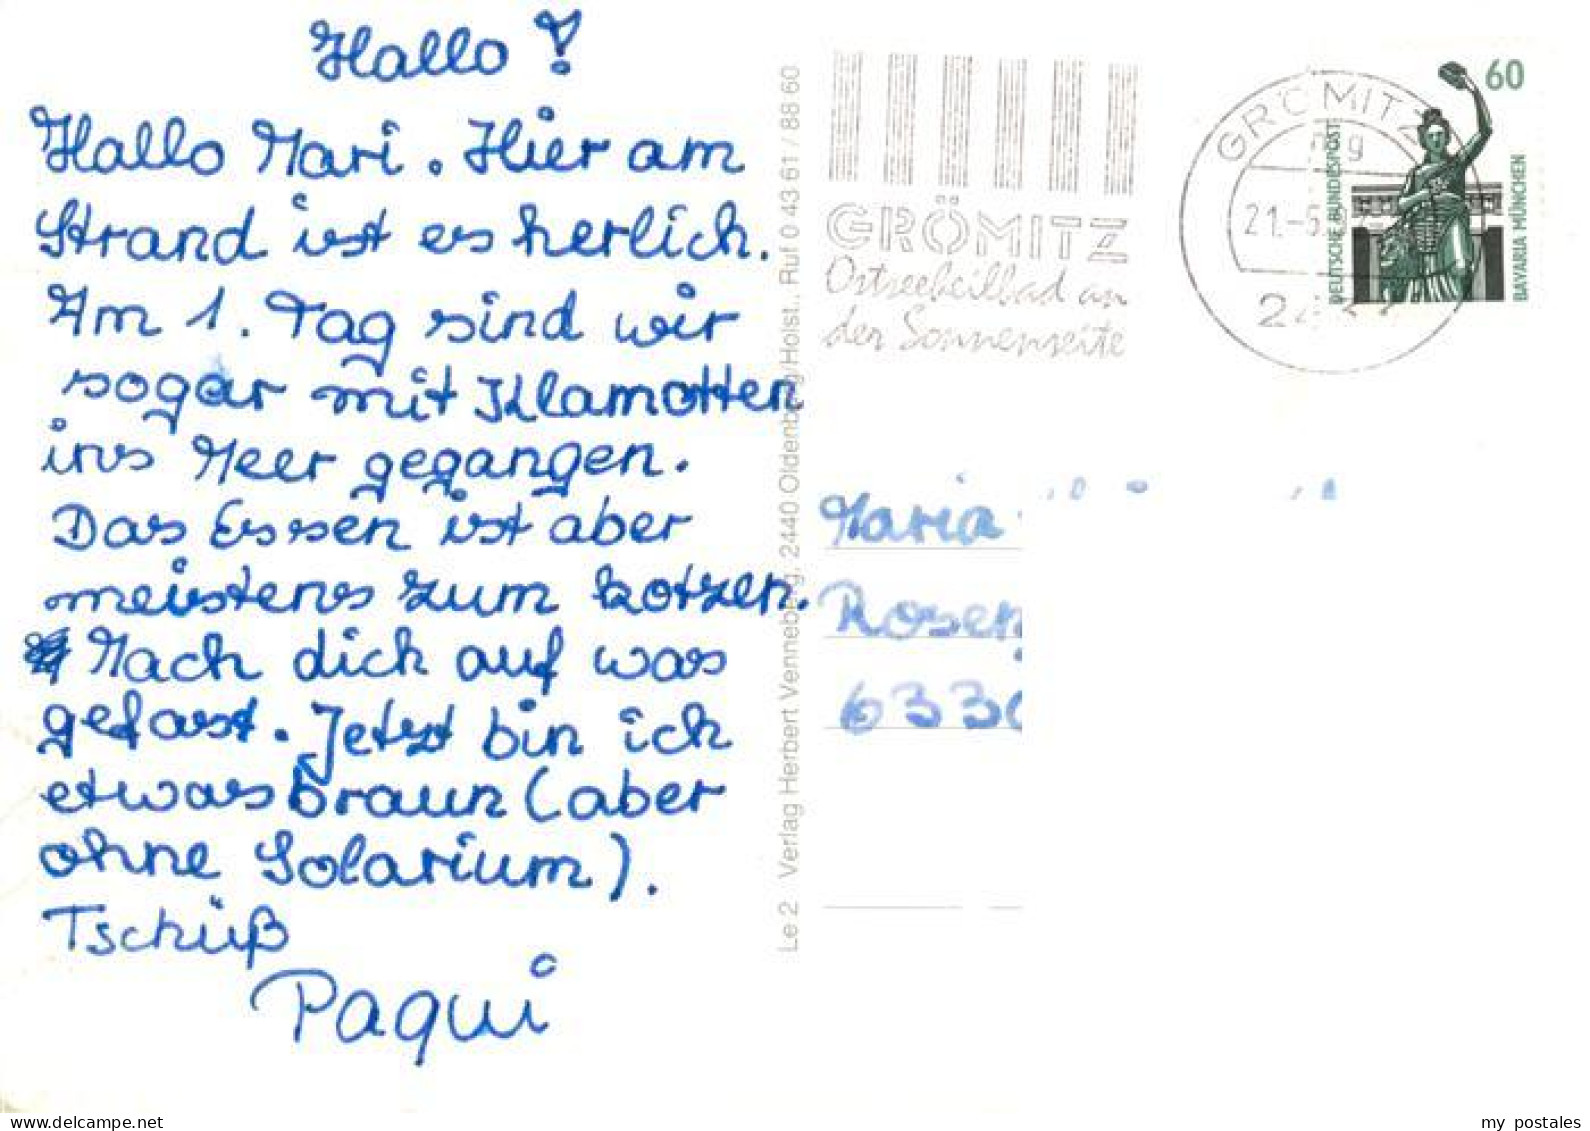 Hallo!
Hallo Mari. Hier am
Strand ist es herlich.
Am 1. Tag sind wir
sogar mit Klamotten
ins Meer gegangen.
Das Essen ist aber
meistens zum kotzen.
Mach dich auf was
gefast. Jetzt bin ich
etwas braun (aber
ohne Solarium).
Tschüß
Paqui
Le 2 Verlag Herbert Venneberg, 2440 Oldenburg/Holst., Ruf 0 43 61 / 88 60
GRÖMITZ
Ostseeheilbad an
der Sonnenseite
GRÖMITZ
21.-6
60
DEUTSCHE BUNDESPOST
BAVARIA MÜNCHEN
Maria
Rosen
6330
my postales